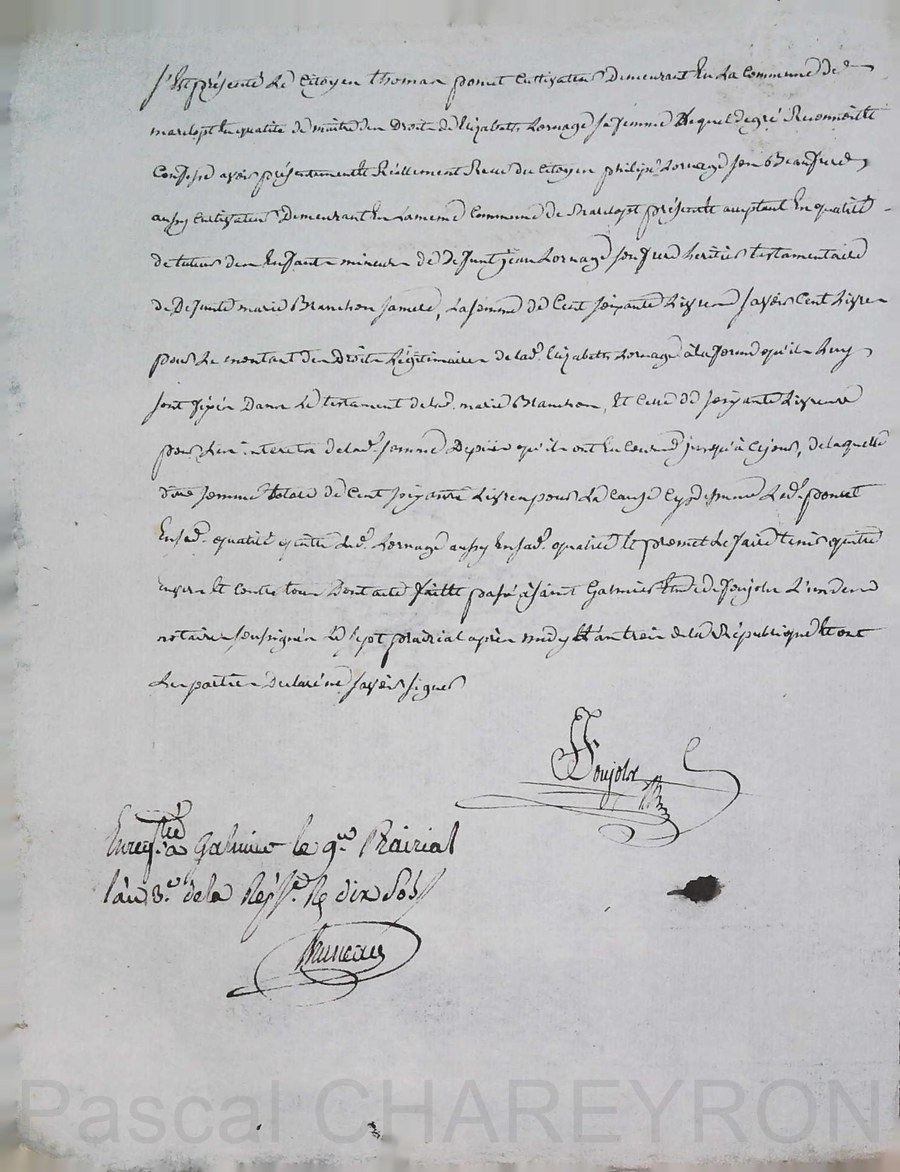 S'est présenté Le Citoyen thomas poncet Cultivateur Demeurant En La Commune de
marclopt En qualité de maitre des Droits de Elizabeth Lornage sa femme Lequel de gré Reconnoit Et
Confesse avoir présentement Et Réellement Receu du Citoyen philipe Lornage son Beaufrere
aussy Cultivateur Demeurant En La meme Commune de Marclopt présent Et acceptant En qualité
de tuteur des Enfants mineurs de Defunt jean Lornage son frere heritier testamentaire
de Defunte marie Blanchon sa mere, La somme de Cent soixante Livres savoir Cent Livres
pour Le montant des Droits Légitimaires de lad. Elizabeth Lornage à la forme qu'ils Luy
sont fixés Dans Le testament de lad. marie Blanchon, Et Celle de soixante Livres
pour Les interets de lad. somme Depuis qu'ils ont En Cours jusqu'à Ce jour, de laquelle
somme totale de Cent soixante Livres pour La Cause Cy dessus Led. poncet
En sad. qualité quitte led. Lornage aussy En sad. qualité Et promet Le faire tenir quitte
Envers Et Contre tous Dont acte fait Et passé à Saint Galmier Etude de Poujolx L'un des
notaires soussignés Le sept prairial après midy Et an trois de la République Et ont
Les parties Declaré ne savoir signer
Poujolx
Enregistré à Galmier le 9 Prairial
l'an 3 de la Rép. R dix Sols
Bruneau
Pascal CHAREYRON